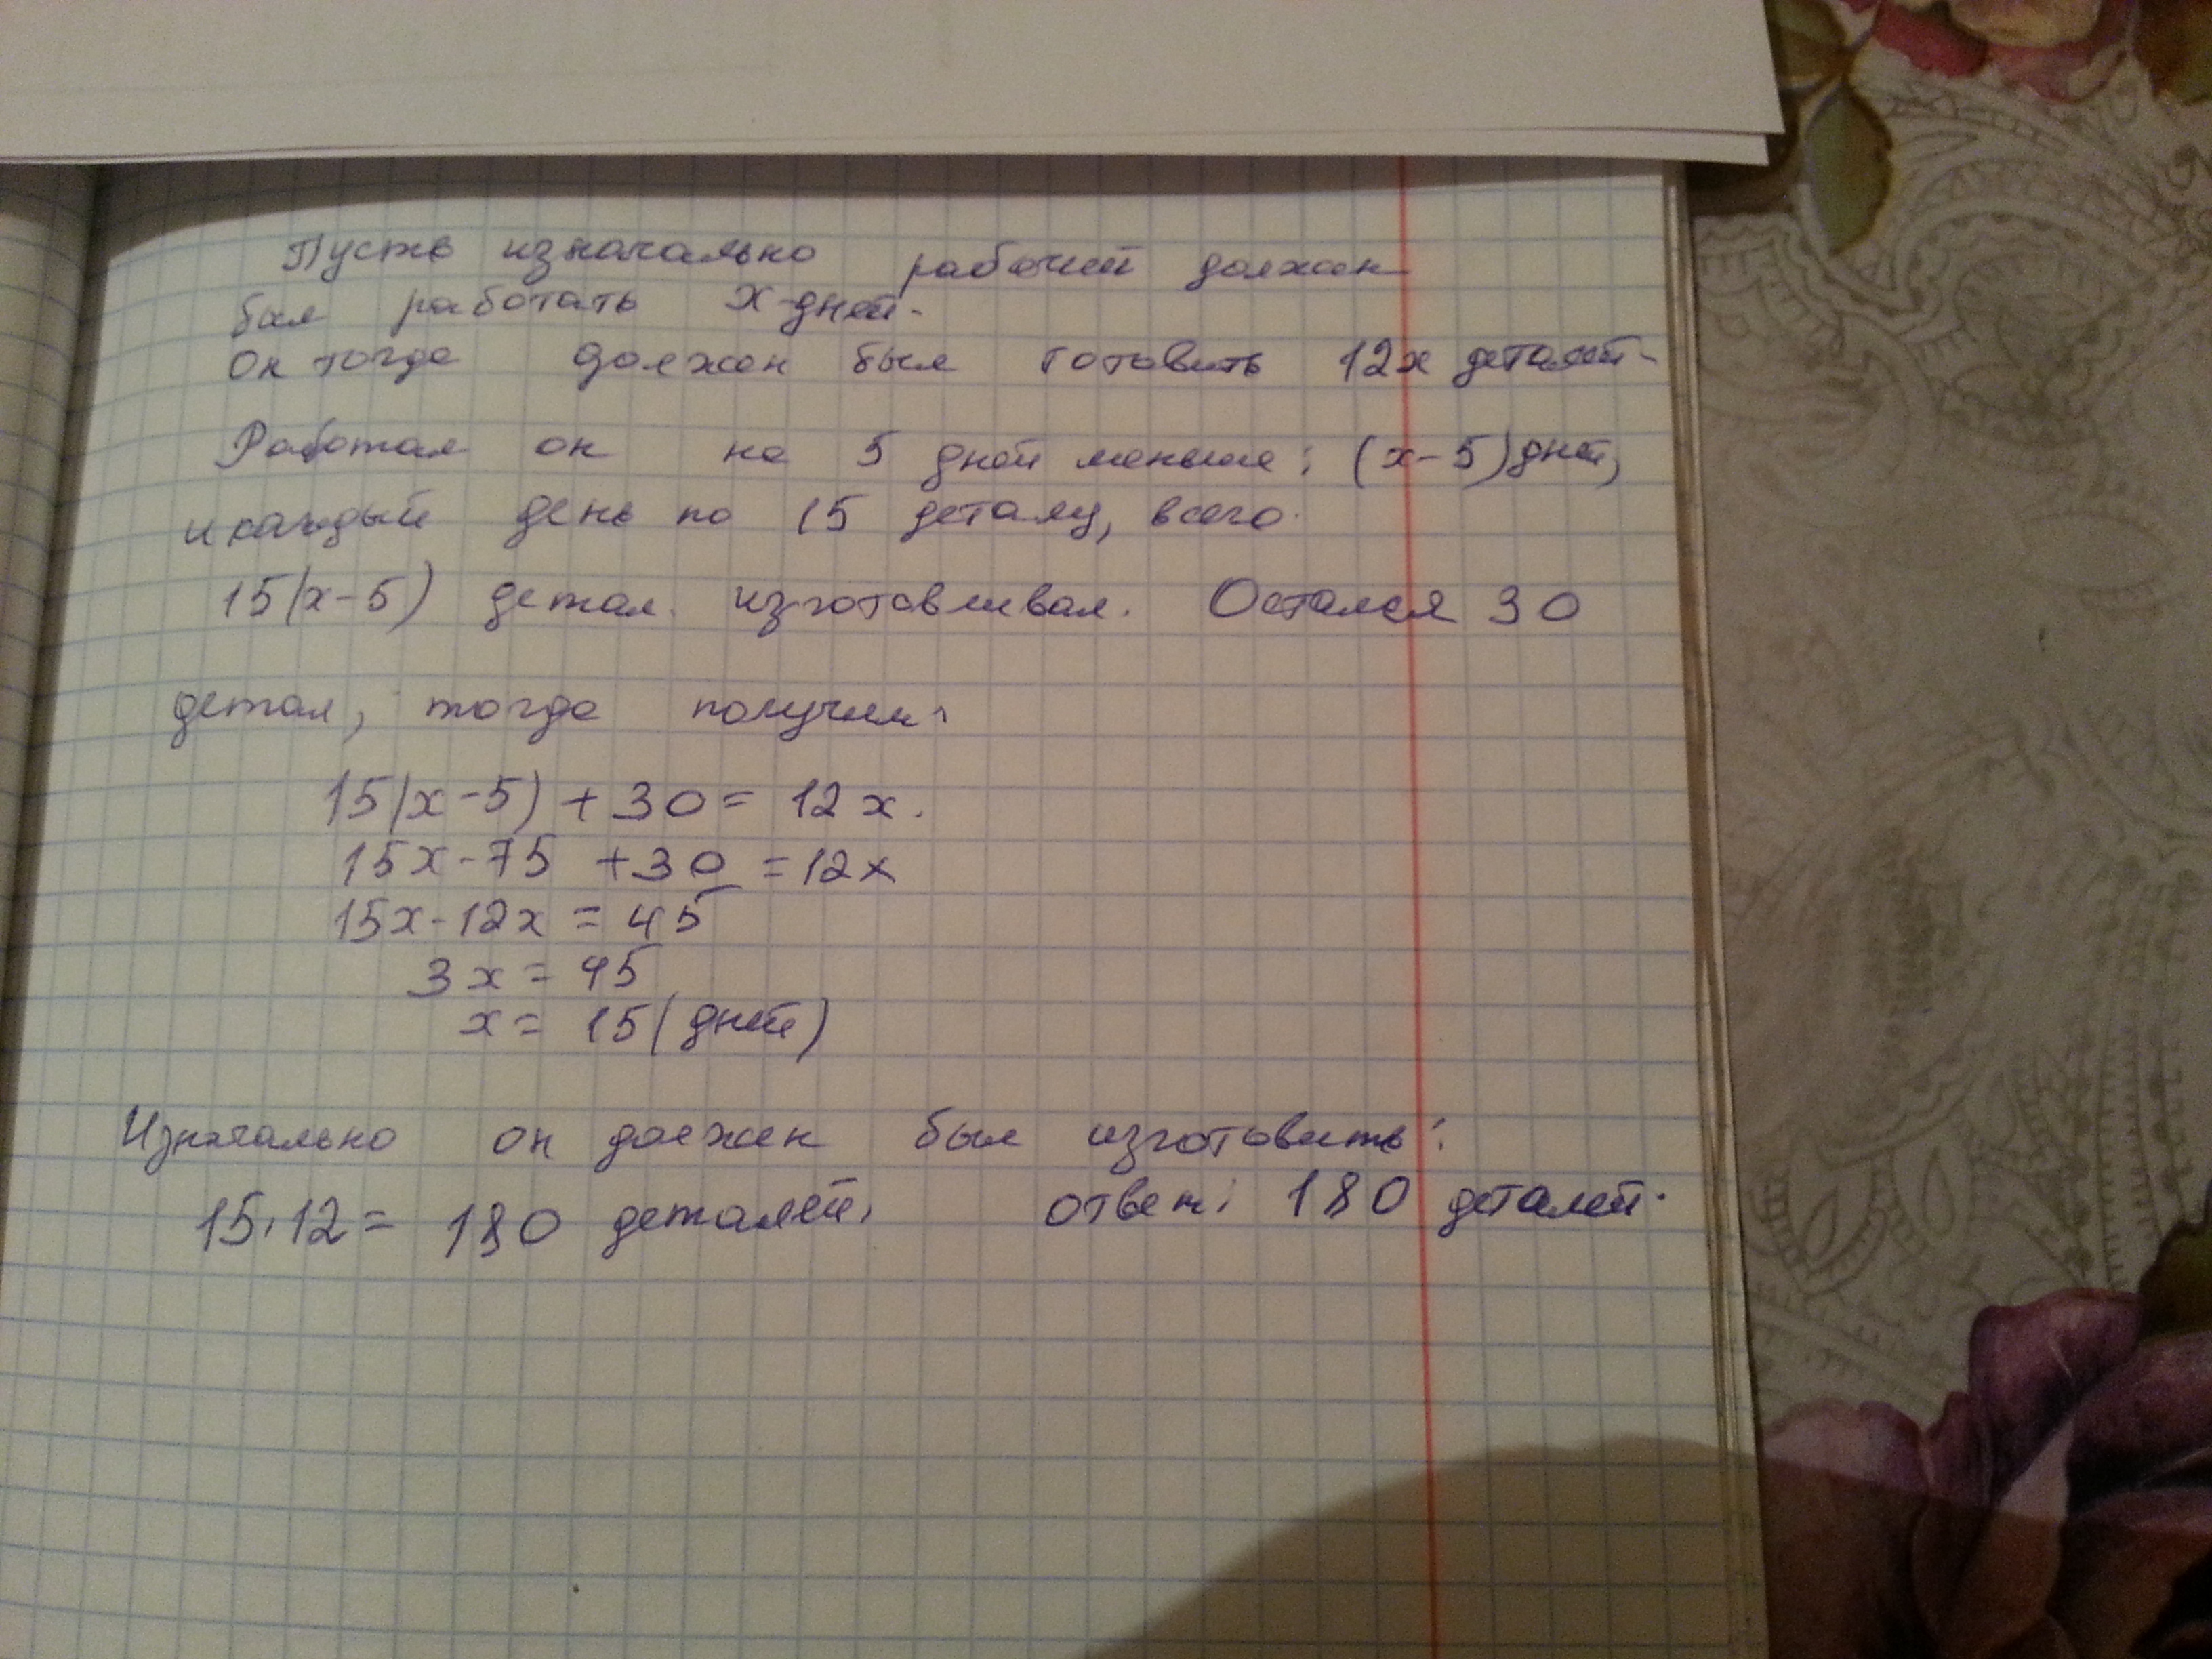 Пусть изначально рабочий должен
был работать x дней.
Он тогда должен был готовить 12x деталей.
Работал он на 5 дней меньше: (x-5) дней,
и каждый день по 15 деталу, всего.
15(x-5) детал. изготовливал. Остался 30
детал, тогда получим:
15(x-5) + 30 = 12x.
15x-75 +30 = 12x
15x-12x = 45
3x = 45
x = 15 (дней)
Изначально он должен был изготовить:
15·12 = 180 деталей. ответ: 180 деталей.